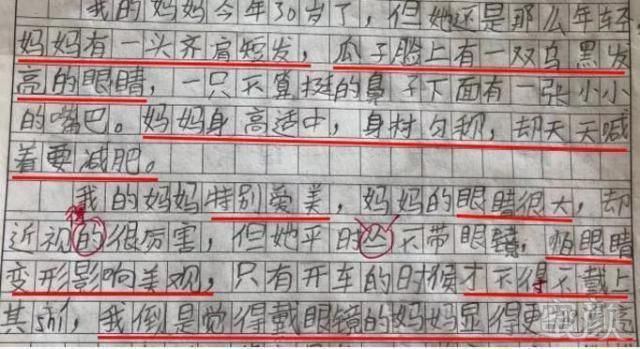 我的妈妈今年30岁了，但她还是那么年轻
妈妈有一头齐肩短发，瓜子脸上有一双乌黑发
亮的眼睛，一只不算挺的鼻子下面有一张小小
的嘴巴。妈妈身高适中，身材匀称，却天天喊
着要减肥。
我的妈妈特别爱美，妈妈的眼睛很大，却
得
近视的很厉害，但她平时从不带眼镜，怕眼睛
变形影响美观，只有开车的时候才不得不戴上
其shí，我倒是觉得戴眼镜的妈妈显得更